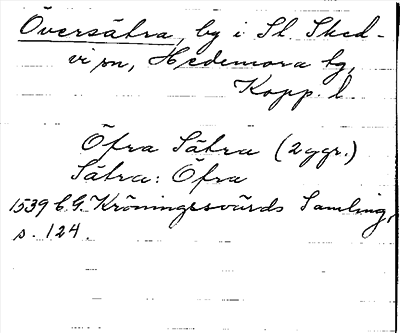 Översätra, by i St. Sked-
vi sn, Hedemora tg,
Kopp. l.
Öfra Sätra (2 ggr.)
Sätra: Öfra
1539 C.G. Kröningssvärds Samling,
s. 124.